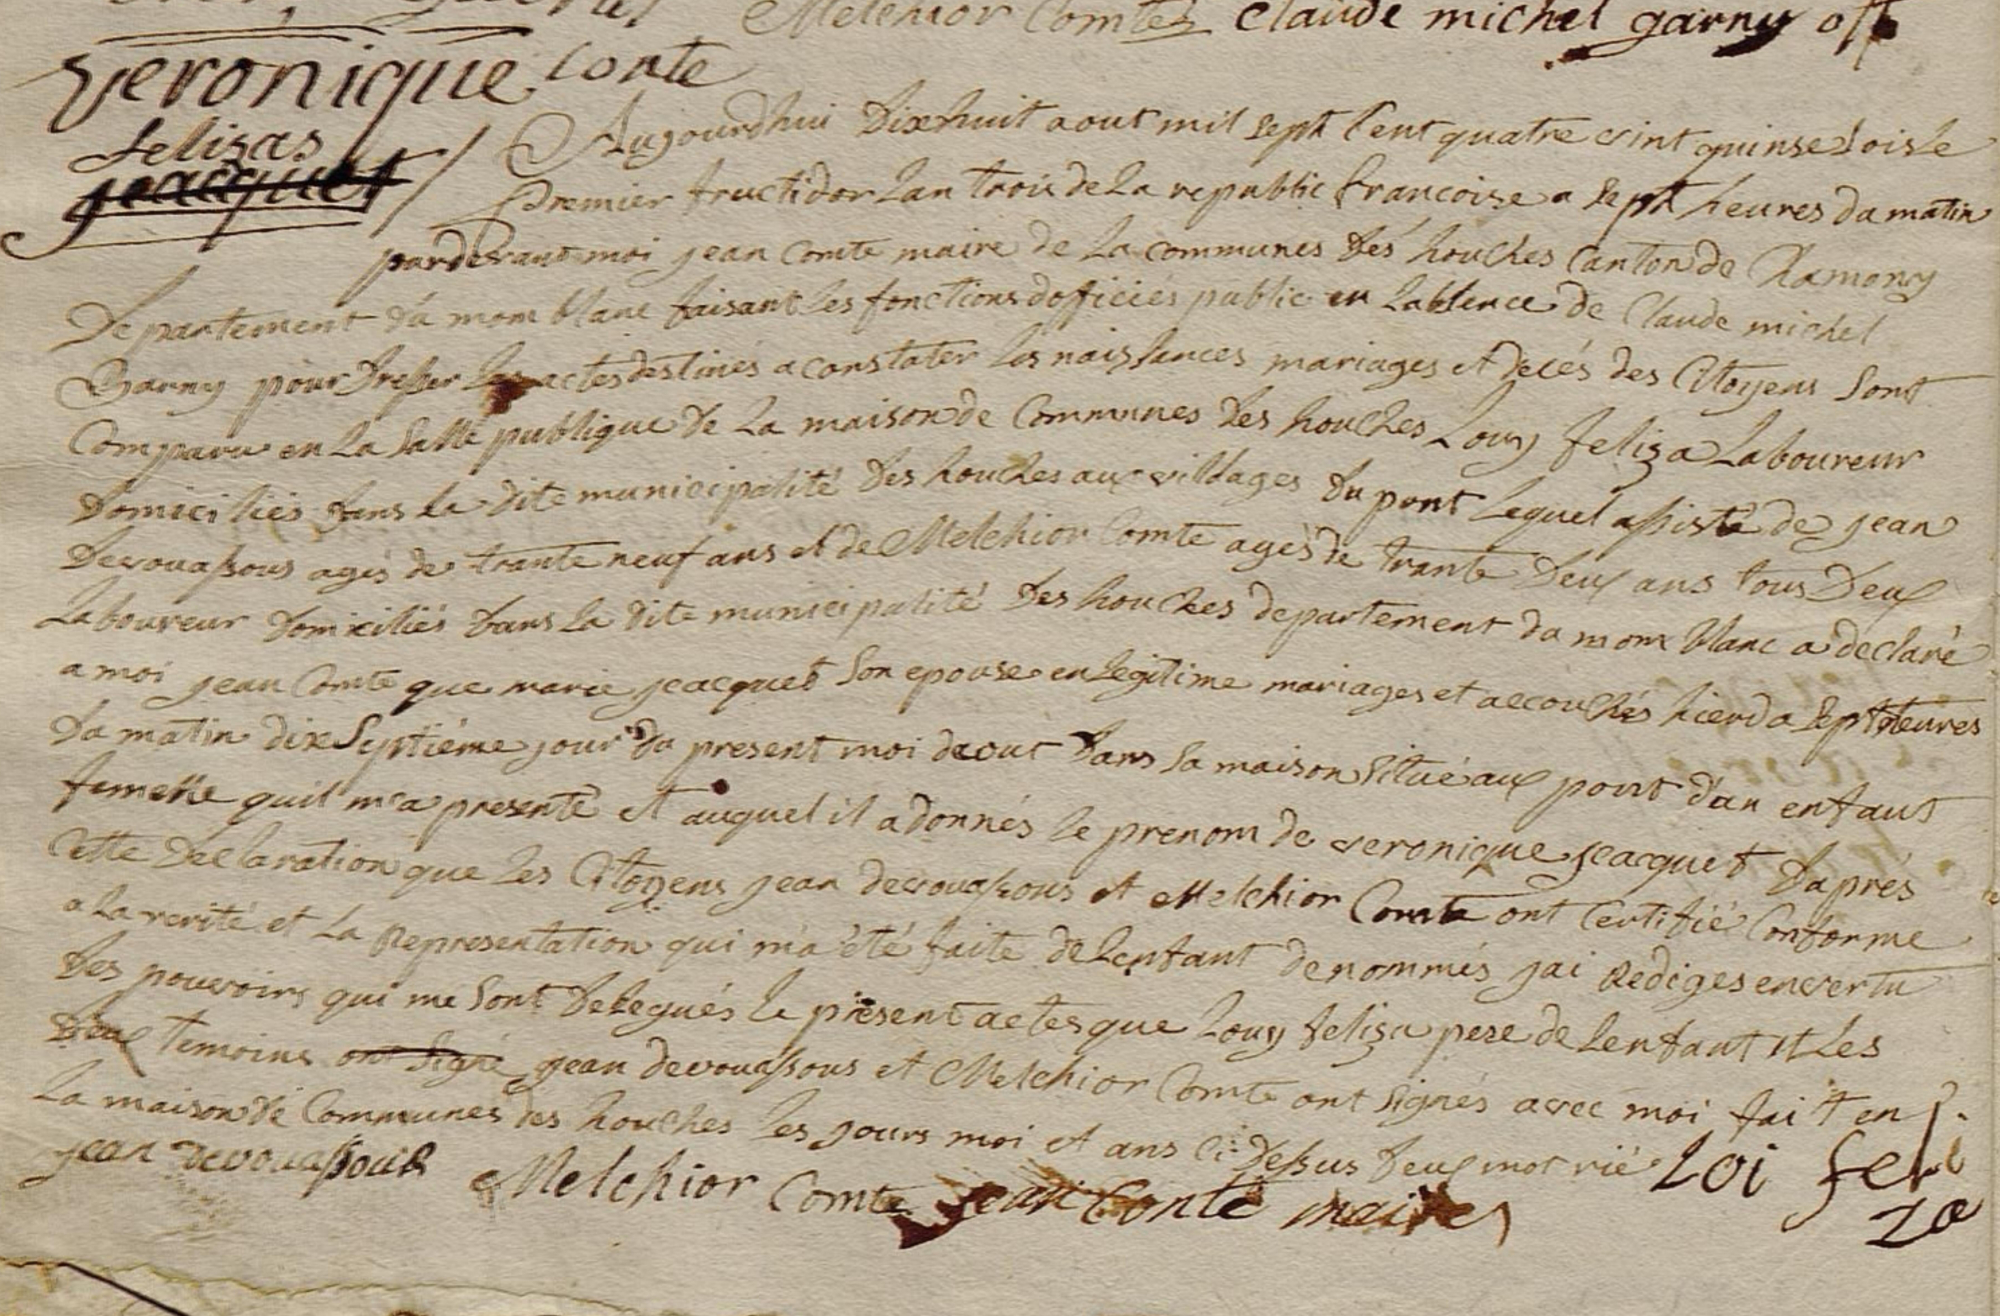 Melchior Comte Claude michel garny off
Veronique conte
felisas
jeacquet
Aujourdhui Dixhuit aout mil sept Cent quatre vint quinse vois le
premier fructidor Lan trois de La republic francoise a sept heures da matin
pardevant moi jean Comte maire de La communes Des houches Canton de Chamony
Departement da mom blanc faisant les fonctions dofficiés public en Labsence de Claude michel
Garny pour dresser les actes destinés a constater les naissances mariages et decés des Citoyens sont
Comparu en La salle publique de La maison de Communes des houches Louy feliza Laboureur
Domiciliés dans la dite municipalité Des houches aux villages Du pont Lequel assisté de jean
Devouassous agés de trante neuf ans et de Melchior Comte agés de trante Deux ans tous Deux
Laboureur Domiciliés dans La dite municipalité Des houches departement da mom blanc a declaré
a moi jean Comte que marie jeacquet son epouse en Legitime mariages et accouchés hier da sept heures
Da matin dix septiéme jour da present moi daout Dans sa maison situé aux pont d'an enfant
femelle quil m'a presenté et auquel il a donnés le prenom de veronique jeacquet Daprés
Cette Declaration que les Citoyens jean devouassous et Melchior Comte ont Certifié Conforme
a la verité et La Representation qui m'a été faite de Lenfant denommés jai Rediges en vertu
Des pouvoirs qui me sont Delegués le present actes que Louy feliza pere de Lenfant et Les
Deux temoins ont signé jean devouassous et Melchior Comte ont signés avec moi fait en
La maison de Communes des houches les jours moi et ans Ci Dessus deux mot rié Loi fel
za
jean devouassoux Melchior Comte jean Conte maires